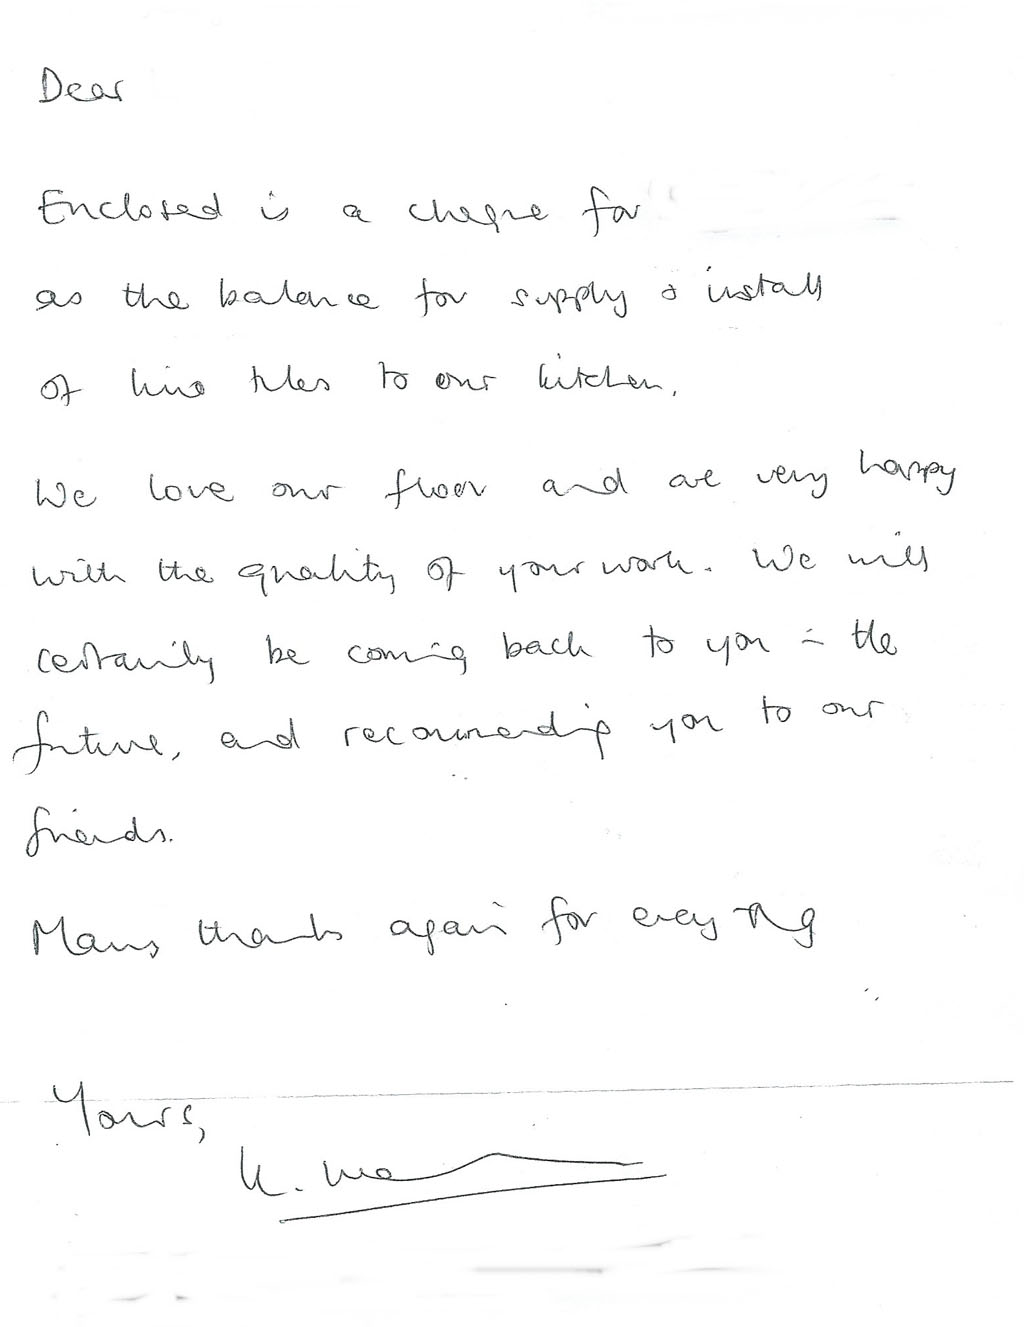 Dear
Enclosed is a cheque for
as the balance for supply & install
of lino tiles to our kitchen.
We love our floor and are very happy
with the quality of your work. We will
certainly be coming back to you in the
future, and recommending you to our
friends.
Many thanks again for everything
Yours,
K.